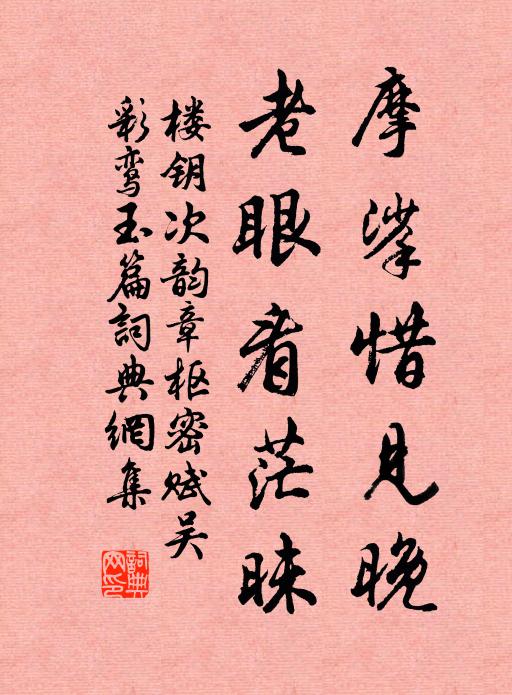 摩挲惜见晚
老眼看茫昧
楼钥次韵章枢密赋吴
彩鸾玉篇詞典網集
詞典网印